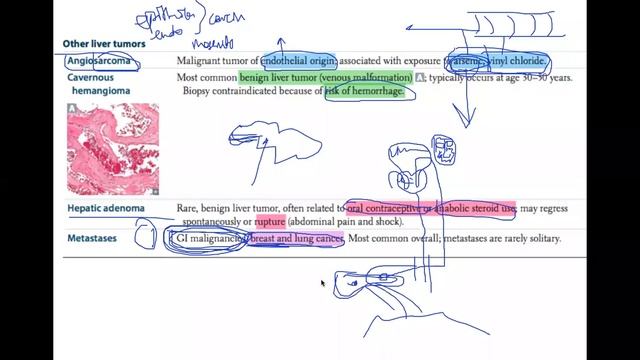 Other liver tumors
Angiosarcoma Malignant tumor of endothelial origin; associated with exposure to arsenic, vinyl chloride.
Cavernous Most common benign liver tumor (venous malformation) A; typically occurs at age 30–50 years.
hemangioma Biopsy contraindicated because of risk of hemorrhage.
A
Hepatic adenoma Rare, benign liver tumor, often related to oral contraceptive or anabolic steroid use; may regress
spontaneously or rupture (abdominal pain and shock).
Metastases GI malignancies, breast and lung cancer. Most common overall; metastases are rarely solitary.